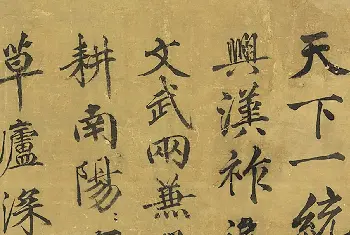 天下一統
興漢祚
文武兩兼
耕南陽
草廬深